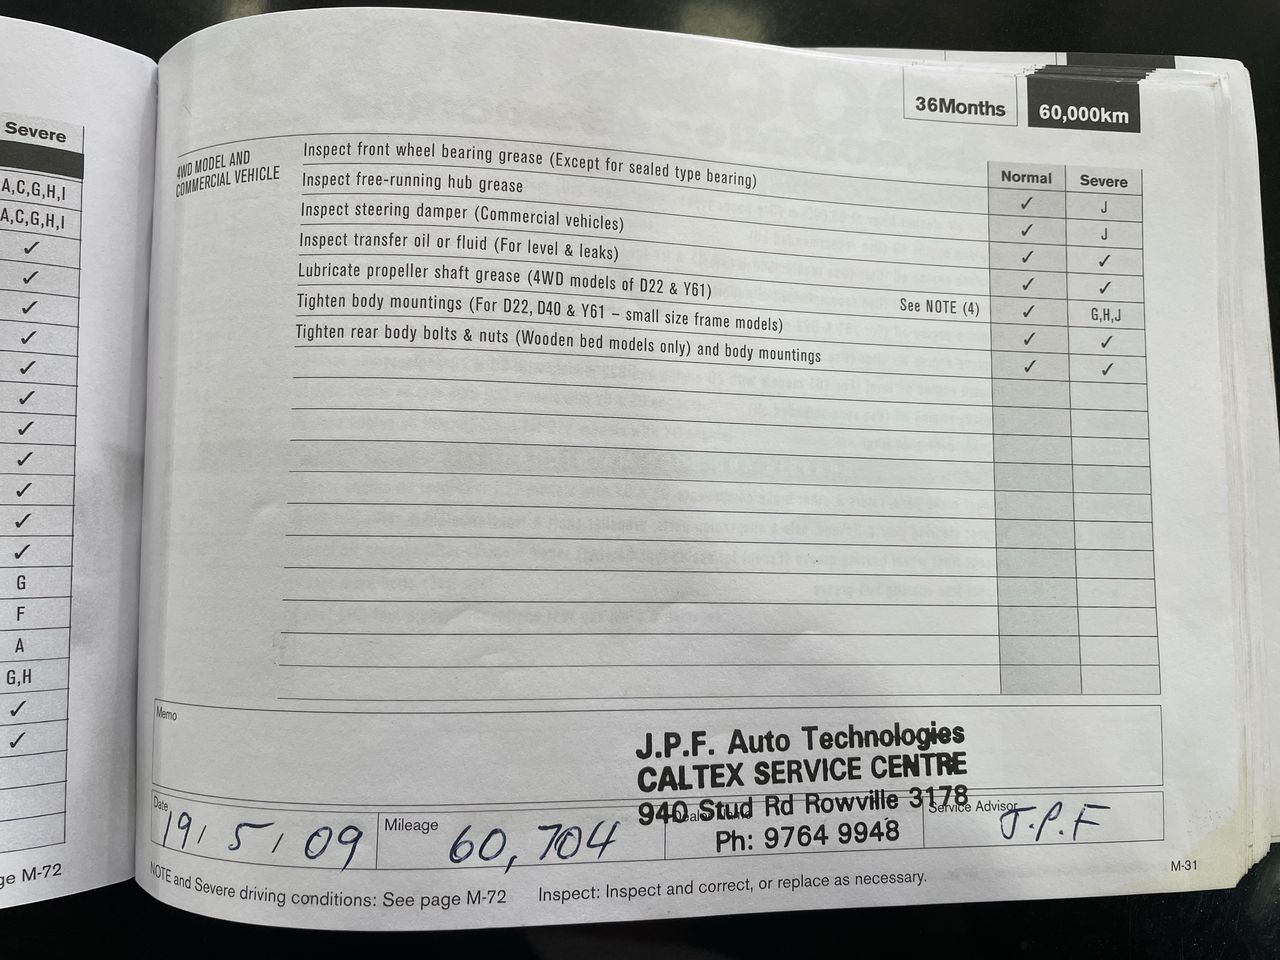 Severe
A,C,G,H,I
A,C,G,H,I
✓
✓
✓
✓
✓
✓
✓
✓
✓
✓
✓
G
F
A
G,H
✓
✓
ge M-72
36Months 60,000km
4WD MODEL AND
COMMERCIAL VEHICLE
Normal Severe
Inspect front wheel bearing grease (Except for sealed type bearing) ✓ J
Inspect free-running hub grease ✓ J
Inspect steering damper (Commercial vehicles) ✓ ✓
Inspect transfer oil or fluid (For level & leaks) ✓ ✓
Lubricate propeller shaft grease (4WD models of D22 & Y61) See NOTE (4) ✓ G,H,J
Tighten body mountings (For D22, D40 & Y61 – small size frame models) ✓ ✓
Tighten rear body bolts & nuts (Wooden bed models only) and body mountings ✓ ✓
Memo
J.P.F. Auto Technologies
CALTEX SERVICE CENTRE
940 Stud Rd Rowville 3178
Ph: 9764 9948
Date 19/5/09
Mileage 60,704
Service Advisor J.P.F
NOTE and Severe driving conditions: See page M-72 Inspect: Inspect and correct, or replace as necessary.
M-31